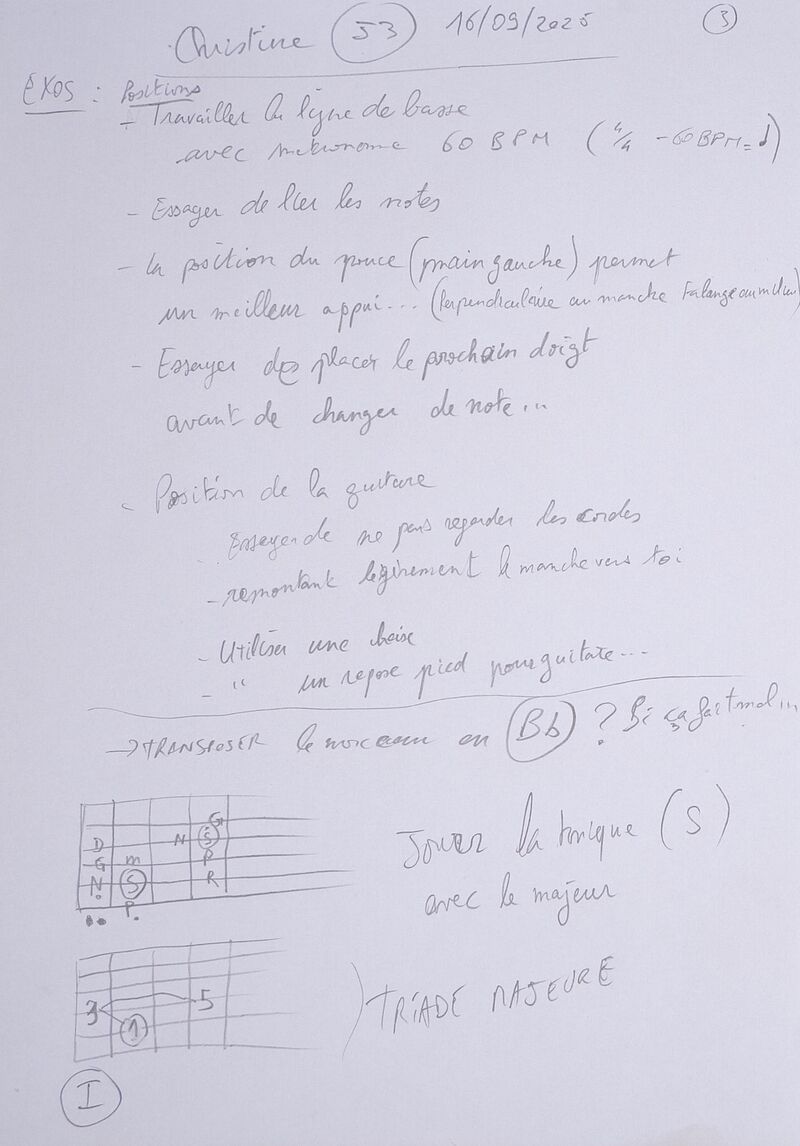 Christine 53 16/09/2025 3
EXOS : Positions
- Travailler la ligne de basse
avec metronome 60 BPM (4/4 - 60 BPM = ♩)
- Essayer de lier les notes
- la position du pouce (main gauche) permet
un meilleur appui... (Perpendiculaire au manche Falange au milieu)
- Essayer de placer le prochain doigt
avant de changer de note...
- Position de la guitare
Essayer de ne pas regarder les cordes
- remontant légèrement le manche vers toi
- Utiliser une
- " un repose pied pour guitare...
→ TRANSPOSER le morceau en Bb ? Si ça fait mal...
G
D N S
G m P
N S R
P
Jouer la tonique (S)
avec le majeur
3 5
1
TRIADE MAJEURE
I